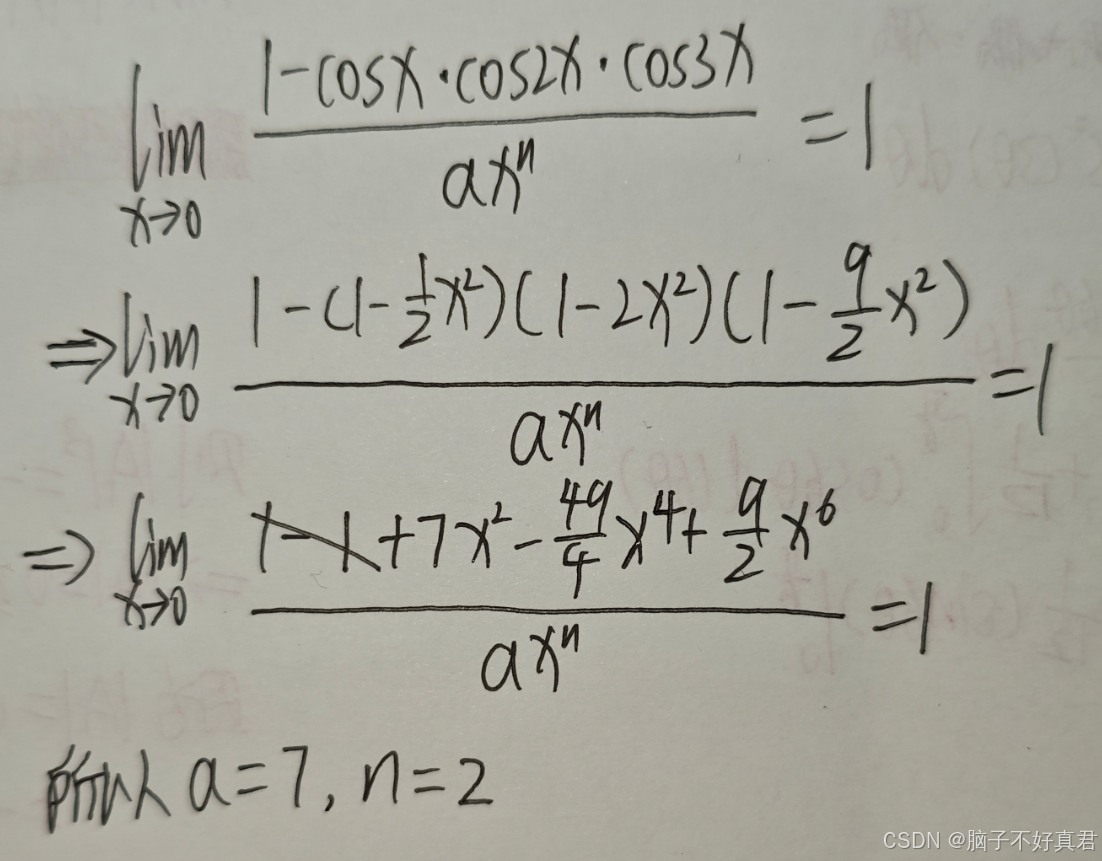 lim x→0 (1-cosx·cos2x·cos3x)/(ax^n) = 1
⇒ lim x→0 (1-(1-1/2x²)(1-2x²)(1-9/2x²))/(ax^n) = 1
⇒ lim x→0 (1-1+7x²-49/4x⁴+9/2x⁶)/(ax^n) = 1
所以 a=7, n=2
CSDN @脑子不好真君